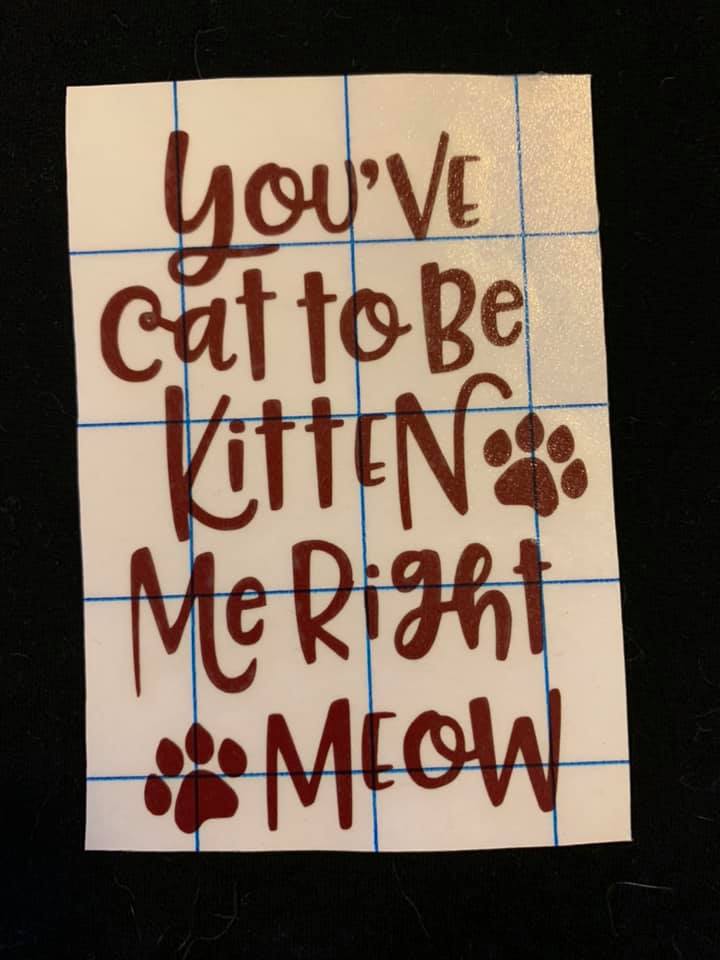 You've
Cat to Be
Kitten
Me Right
Meow